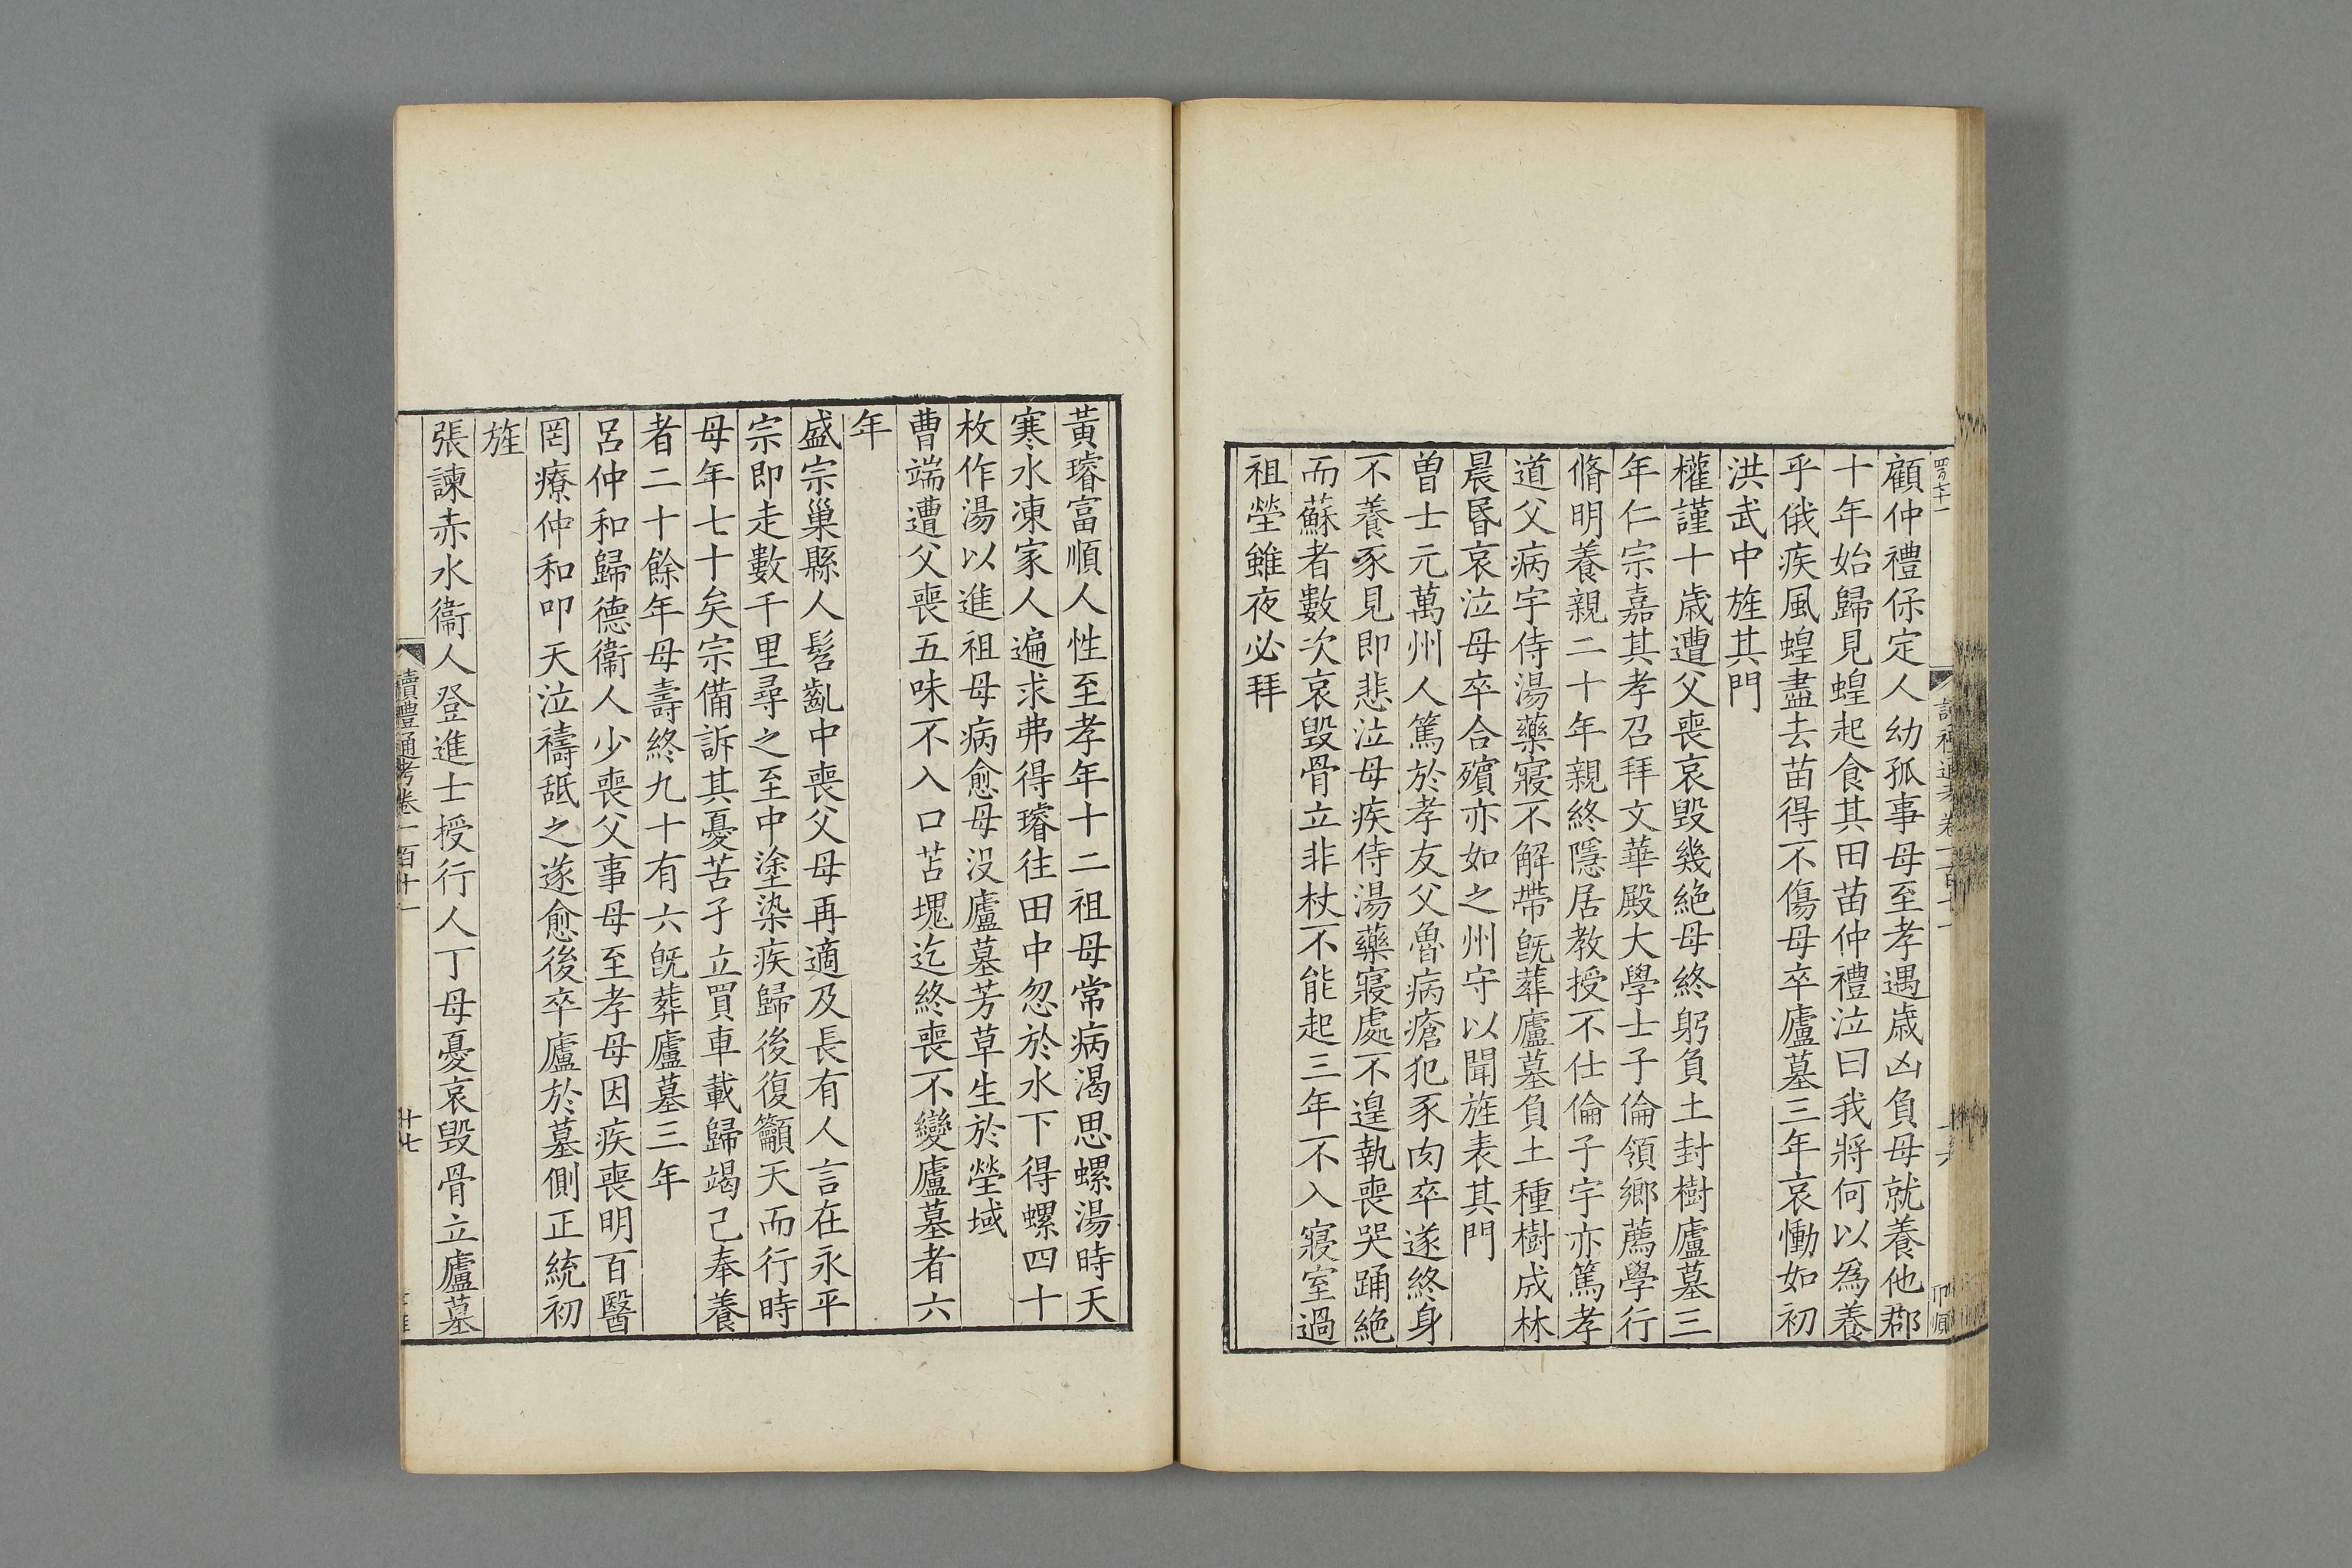 顧仲禮保定人幼孤事母至孝遇歲凶負母就養他郡
十年始歸見蝗起食其田苗仲禮泣曰我將何以為養
乎俄疾風蝗盡去苗得不傷母卒廬墓三年哀慟如初
洪武中旌其門
權謹十歲遭父喪哀毀幾絶母終躬負土封樹廬墓三
年仁宗嘉其孝召拜文華殿大學士子倫領鄉薦學行
脩明養親二十年親終隱居教授不仕倫子宇亦篤孝
道父病宇侍湯藥寢不解帶旣葬廬墓負土種樹成林
晨昬哀泣母卒合殯亦如之州守以聞旌表其門
曾士元萬州人篤於孝友父魯病瘡犯豕肉卒遂終身
不養豕見即悲泣母疾侍湯藥寢處不遑執喪哭踊絶
而蘇者數次哀毀骨立非杖不能起三年不入寢室過
祖塋雖夜必拜
黃璿富順人性至孝年十二祖母常病渴思螺湯時天
寒水凍家人遍求弗得璿往田中忽於水下得螺四十
枚作湯以進祖母病愈母没廬墓芳草生於塋域
曹端遭父喪五味不入口苫塊迄終喪不變廬墓者六
年
盛宗巢縣人髫齓中喪父母再適及長有人言在永平
宗即走數千里尋之至中塗染疾歸後復籲天而行時
母年七十矣宗備訴其憂苦孑立買車載歸竭己奉養
者二十餘年母壽終九十有六旣葬廬墓三年
呂仲和歸德衞人少喪父事母至孝母因疾喪明百醫
罔療仲和叩天泣禱舐之遂愈後卒廬於墓側正統初
旌
張諫赤水衞人登進士授行人丁母憂哀毀骨立廬墓
讀禮通考卷一百十一
十七